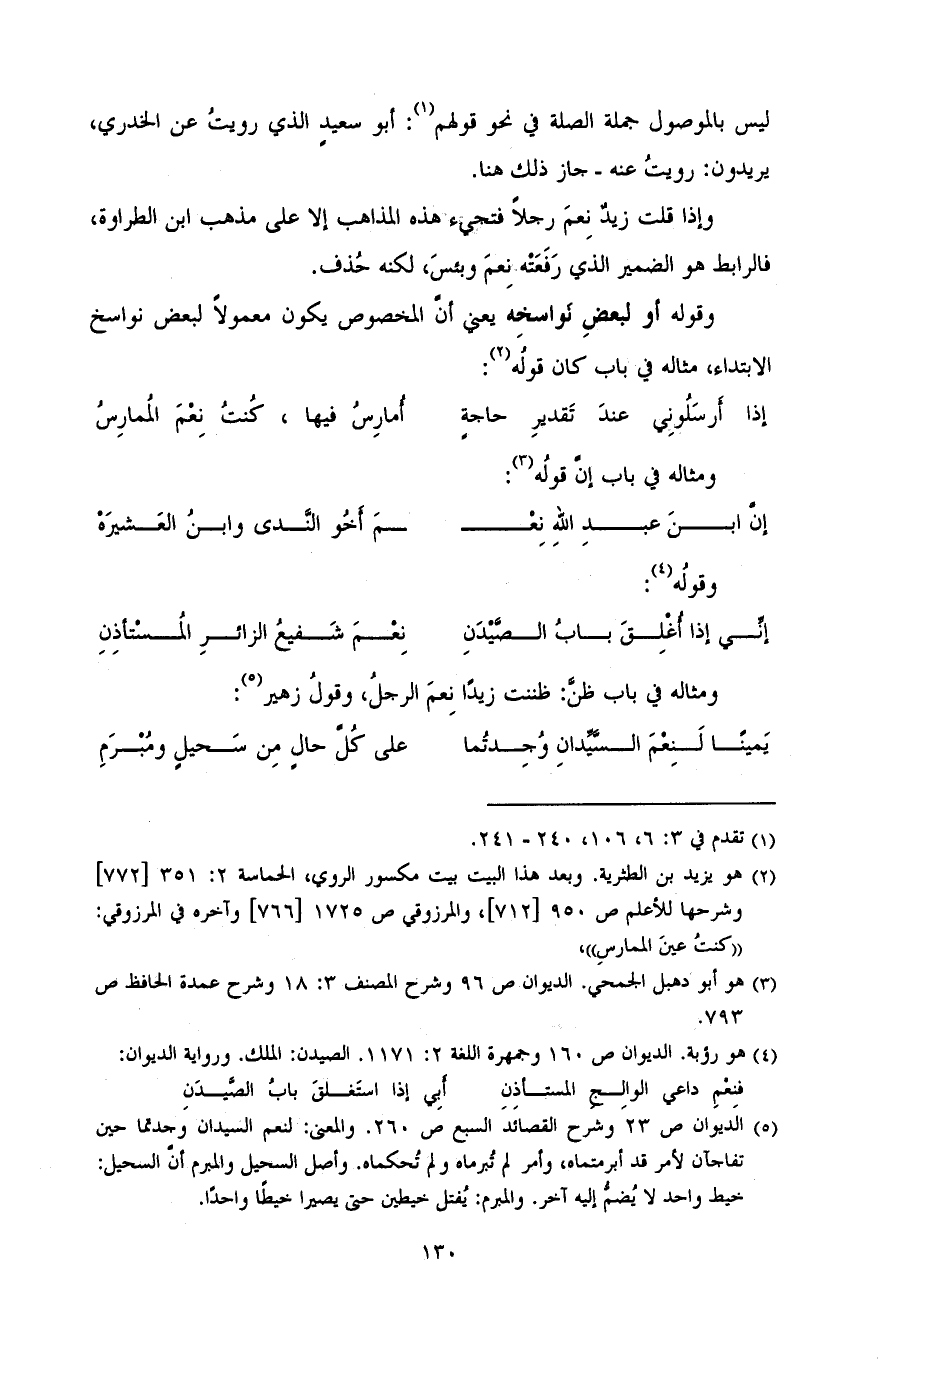 ليس بالموصول جملة الصلة في نحو قولهم(١): أبو سعيدٍ الذي رويتُ عن الخدري،
يريدون: رويتُ عنه - جاز ذلك هنا.
وإذا قلت زيدٌ نِعمَ رجلاً فتجيء هذه المذاهب إلا على مذهب ابن الطراوة،
فالرابط هو الضمير الذي رَفَعَتْه نِعمَ وبئسَ، لكنه حُذف.
وقوله أو لبعضِ نَواسخِه يعني أنَّ المخصوص يكون معمولاً لبعض نواسخ
الابتداء، مثاله في باب كان قولُه(٢):
إذا أَرسَلُونِي عندَ تَقديرِ حاجةٍ أُمارِسُ فيها ، كُنتُ نِعْمَ المُمارِسُ
ومثاله في باب إنَّ قولُه(٣):
إنَّ ابــنَ عبــدِ اللهِ نِعْـــ ـــمَ أَخُو النَّــدى وابــنُ العَــشيرَهْ
وقولُه(٤):
إنِّــي إذا أُغْلِــقَ بــابُ الــصَّيْدَنِ نِعْــمَ شَــفيعُ الزائــرِ المُــسْتأذِنِ
ومثاله في باب ظنَّ: ظننت زيدًا نِعمَ الرجلُ، وقولُ زهير(٥):
يَمينًــا لَــنِعْمَ الــسَّيِّدانِ وُجِــدتُما على كُلِّ حالٍ مِن سَــحيلٍ ومُبْــرَمِ
(١) تقدم في ٣: ٦، ١٠٦، ٢٤٠ - ٢٤١.
(٢) هو يزيد بن الطثرية. وبعد هذا البيت بيت مكسور الروي، الحماسة ٢: ٣٥١ [٧٧٢]
وشرحها للأعلم ص ٩٥٠ [٧١٢]، والمرزوقي ص ١٧٢٥ [٧٦٦] وآخره في المرزوقي:
((كنتُ عينَ الممارسِ))،
(٣) هو أبو دهبل الجمحي. الديوان ص ٩٦ وشرح المصنف ٣: ١٨ وشرح عمدة الحافظ ص
٧٩٣.
(٤) هو رؤبة. الديوان ص ١٦٠ وجمهرة اللغة ٢: ١١٧١. الصيدن: الملك. ورواية الديوان:
فنِعْمِ داعي الوالــجِ المستــأذِنِ أَبي إذا استَغــلقَ بابُ الصَّيــدَنِ
(٥) الديوان ص ٢٣ وشرح القصائد السبع ص ٢٦٠. والمعنى: لنعم السيدان وجدتما حين
تفاجآن لأمر قد أبرمتماه، وأمر لم تُبرماه ولم تُحكماه. وأصل السحيل والمبرم أنَّ السحيل:
خيط واحد لا يُضمُّ إليه آخر. والمبرم: يُفتل خيطين حتى يصيرا خيطًا واحدًا.
١٣٠